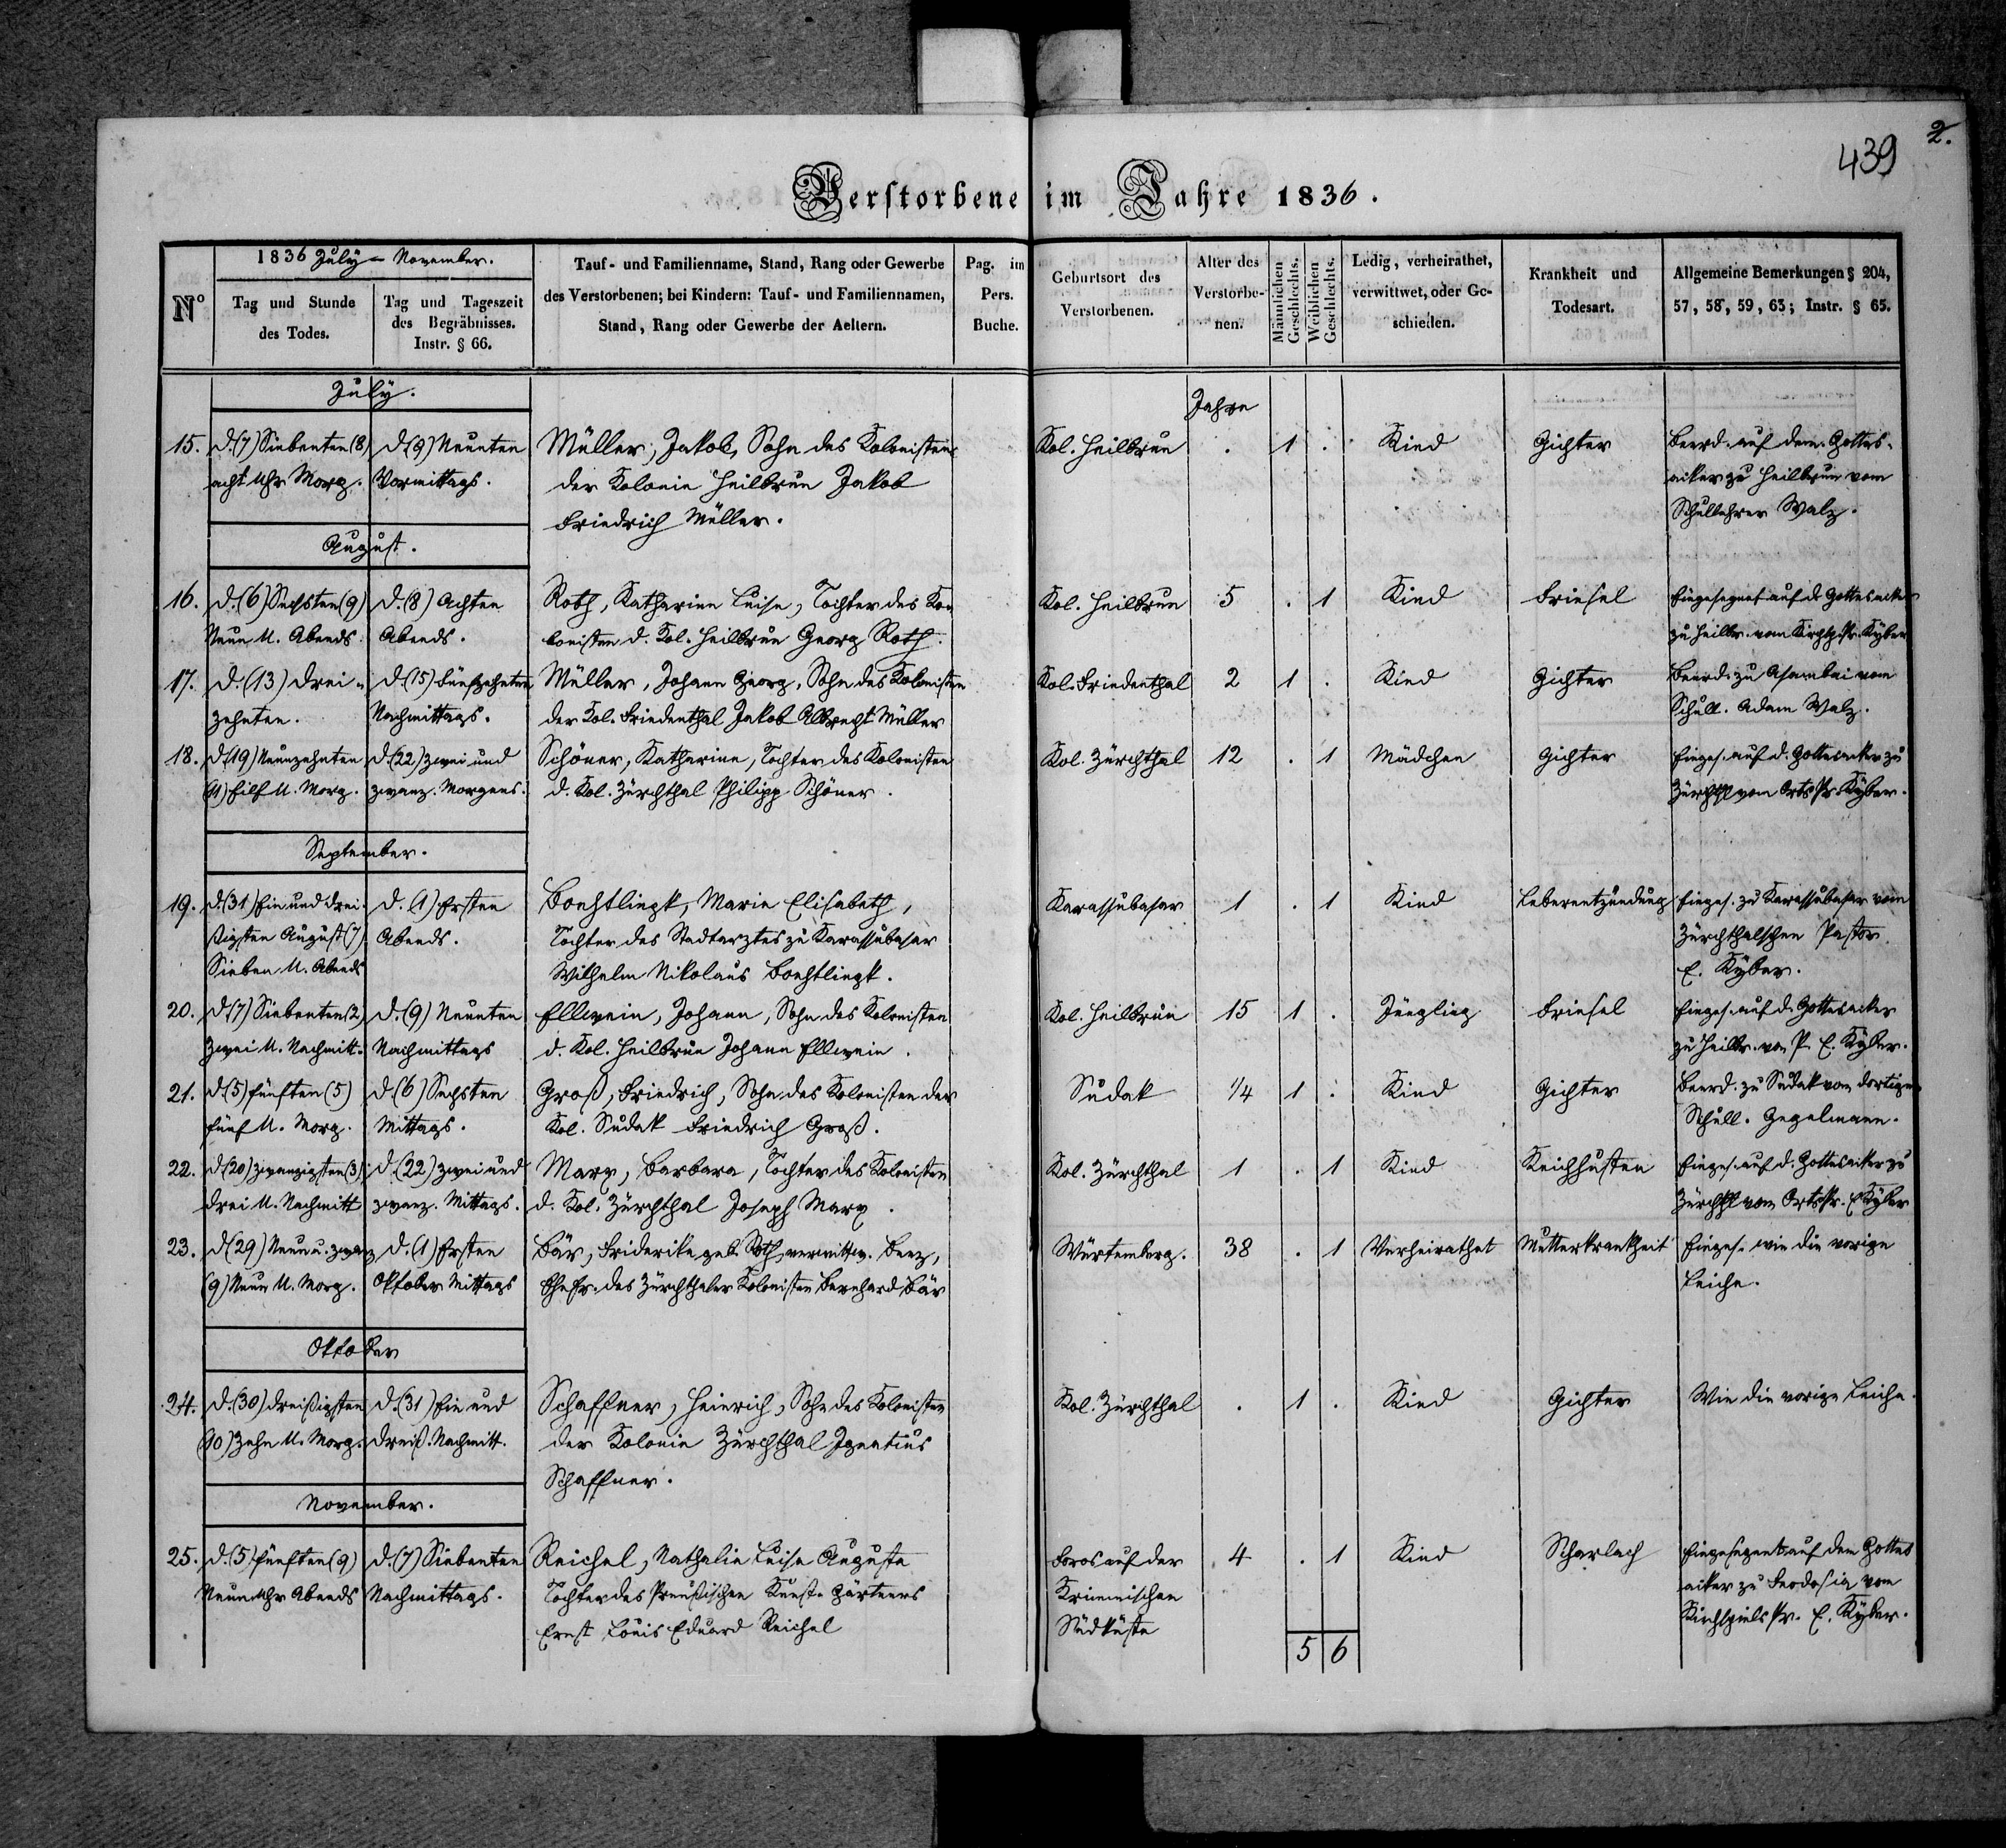 2.
439
Verstorbene im Jahre 1836.
1836 July - November.
Nº
Tag und Stunde
des Todes.
Tag und Tageszeit
des Begräbnisses.
Instr. § 66.
Tauf- und Familienname, Stand, Rang oder Gewerbe
des Verstorbenen; bei Kindern: Tauf- und Familiennamen,
Stand, Rang oder Gewerbe der Aeltern.
Pag. im
Pers.
Buche.
Geburtsort des
Verstorbenen.
Alter des
Verstorbe-
nen.
Männlichen
Geschlechts.
Weiblichen
Geschlechts.
Ledig, verheirathet,
verwittwet, oder Ge-
schieden.
Krankheit und
Todesart.
Allgemeine Bemerkungen § 204,
57, 58, 59, 63; Instr. § 65.
July.
Jahre
15. d.(7) Siebenten (8) d.(9) Neunten Müller, Jakob, Sohn des Kolonisten Kol. Heilbrun . 1 . Kind Gichter Beerd. auf dem Gottes-
acht Uhr Morg. Vormittags. der Kolonie Heilbrun Jakob acker zu Heilbrun vom
Friedrich Müller. Schullehrer Walz.
August.
16. d.(6) Sechsten (9) d.(8) Achten Roth, Katharina Luise, Tochter des Ko- Kol. Heilbrun 5 . 1 Kind Friesel Eingesegnet auf d. Gottesacker
Neun U. Abends. Abends. lonisten d. Kol. Heilbrun Georg Roth. zu Heilbr. vom Kirchsp. Pr. Kyber
17. d.(13) Drei- d.(15) Fünfzehnten Müller, Johann Georg, Sohn des Kolonisten Kol. Friedenthal 2 1 . Kind Gichter Beerd. zu Asambai vom
zehnten. Nachmittags. der Kol. Friedenthal Jakob Albrecht Müller Schull. Adam Walz.
18. d.(19) Neunzehnten d.(22) Zwei und Schöner, Katharina, Tochter des Kolonisten Kol. Zürchthal 12 . 1 Mädchen Gichter Einges. auf d. Gottesacker zu
(11) Eilf U. Morg. zwanz. Morgens. d. Kol. Zürchthal Philipp Schöner. Zürchthl vom Orts Pr. Kyber.
September.
19. d.(31) Ein und drei- d.(1) Ersten Boehtlingk, Marie Elisabeth, Karassubasar 1 . 1 Kind Leberentzündung Einges. zu Karassubasar vom
ßigsten August (7) Abends. Tochter des Stadtarztes zu Karassubasar Zürchthalschen Pastor
Sieben U. Abends Wilhelm Nikolaus Boehtlingk. E. Kyber.
20. d.(7) Siebenten (2) d.(9) Neunten Ellwein, Johann, Sohn des Kolonisten Kol. Heilbrun 15 1 . Jüngling Friesel Einges. auf d. Gottesacker
Zwei U. Nachmitt. Nachmittags d. Kol. Heilbrun Johann Ellwein. zu Heilbr. von P. E. Kyber.
21. d.(5) Fünften (5) d.(6) Sechsten Groß, Friedrich, Sohn des Kolonisten der Sudak 1/4 1 . Kind Gichter Beerd. zu Sudak vom dortigen
Fünf U. Morg. Mittags. Kol. Sudak Friedrich Groß. Schull. Gegelmann.
22. d.(20) Zwanzigsten (3) d.(22) Zwei und Marx, Barbara, Tochter des Kolonisten Kol. Zürchthal 1 . 1 Kind Keichhusten Einges. auf d. Gottesacker zu
Drei U. Nachmitt zwanz. Mittags. d. Kol. Zürchthal Joseph Marx. Zürchthl vom Orts Pr. E Kyber
23. d.(29) Neun u. zwanz d.(1) Ersten Bär, Friderike geb. Roth, verwittw. Benz, Würtemberg. 38 . 1 Verheirathet Mutterkrankheit Einges. wie die vorige
(9) Neun U. Morg. Oktober Mittags Ehefr. des Zürchthaler Kolonisten Bernhard Bär Leiche.
Oktober
24. d.(30) Dreißigsten d.(31) Ein und Schaffner, Heinrich, Sohn des Kolonisten Kol. Zürchthal . 1 . Kind Gichter Wie die vorige Leiche.
(10) Zehn U. Morg. dreiß. Nachmitt. der Kolonie Zürchthal Ignatius
Schaffner.
November.
25. d.(5) Fünften (9) d.(7) Siebenten Reichel, Nathalie Luise Auguste Foros auf der 4 . 1 Kind Scharlach Eingesegnet auf dem Gottes
Neun Uhr Abends Nachmittags. Tochter des Preußischen Kunst-Gärtners Krimmischen acker zu Feodosia vom
Ernst Louis Eduard Reichel Südküste Kirchspiels Pr. E. Kyber.
5 6